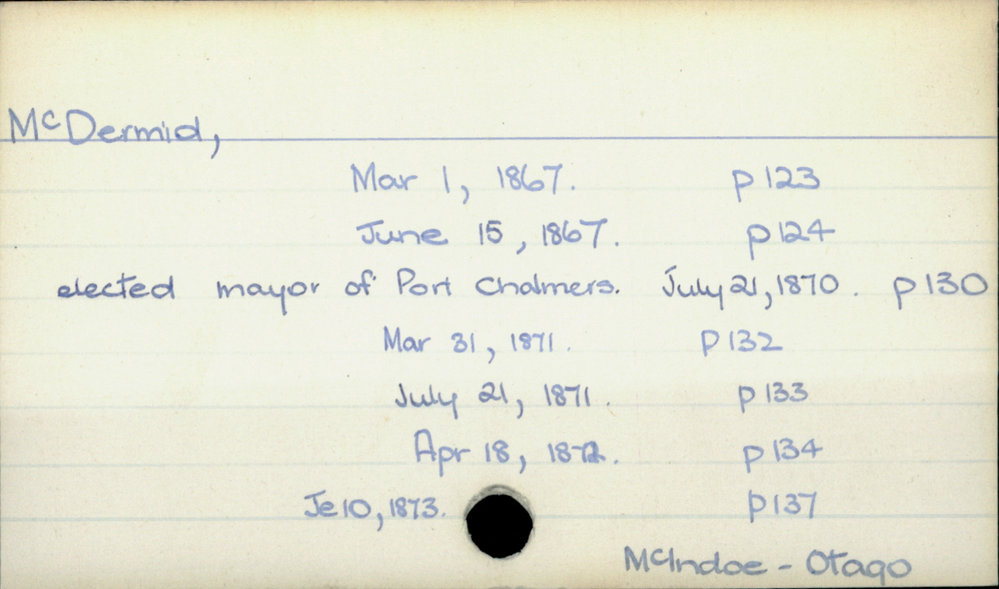 McDermid,
Mar 1, 1867. p123
June 15, 1867. p124
elected mayor of Port Chalmers. July 21, 1870. p130
Mar 31, 1871. p132
July 21, 1871. p133
Apr 18, 1872. p134
Je 10, 1873. p137
McIndoe - Otago